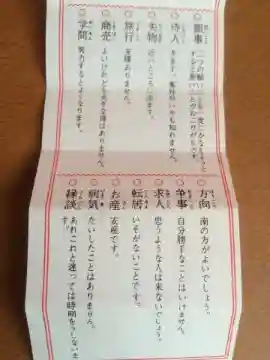 ○願事 二つの願いを一度にかなえようとすると
○待人 きます。
○失物 近いところに出ます。
○旅行 支障ありません。
○商売 よいけど大きな
○学問 努力するとよくなります。
○方向 南の方がよいでしょう。
○争事 自分勝手なことはいけません。
○求人 思うような人は来ないでしょう。
○転居 いそがないことです。
○お産 安産です。
○病気 たいしたことはありません。
○縁談 あれこれと迷っては時期をうしないます。